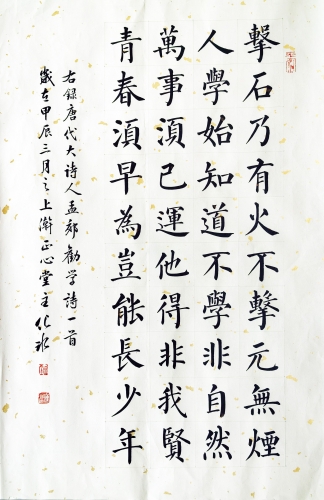 擊石乃有火不擊元無煙
人學始知道不學非自然
萬事須己運他得非我賢
青春須早為豈能長少年
右錄唐代大诗人孟郊勸学诗一首
歲在甲辰三月之上澣正心堂主化冰